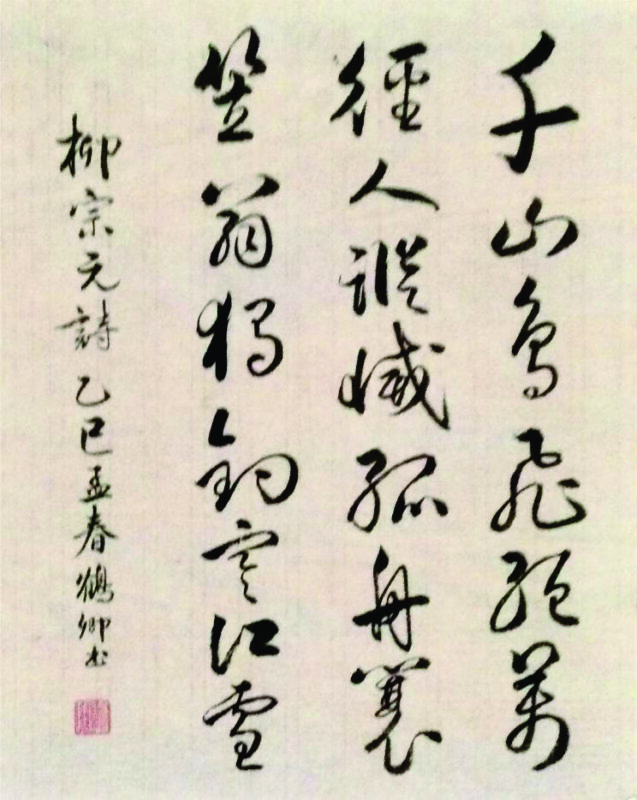 千山鳥飛絕萬
徑人蹤滅孤舟蓑
笠翁獨釣寒江雪
柳宗元詩乙巳孟春鶴卿書